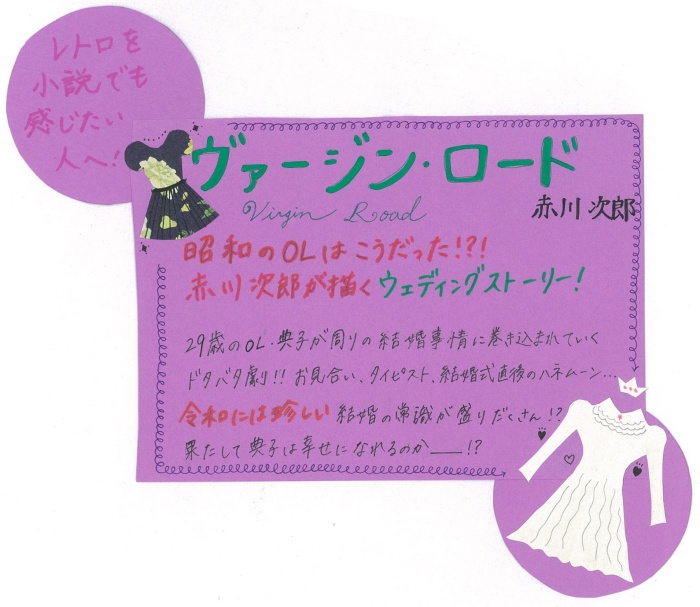 レトロを
小説でも
感じたい
人へ!
ヴァージン・ロード
Virgin Road
赤川次郎
昭和のOLはこうだった!?!
赤川次郎が描くウェディングストーリー!
29歳のOL・典子が周りの結婚事情に巻き込まれていく
ドタバタ劇!! お見合い、タイピスト、結婚式直後のハネムーン...
令和には珍しい結婚の常識が盛りだくさん!?
果たして典子は幸せになれるのか――!?